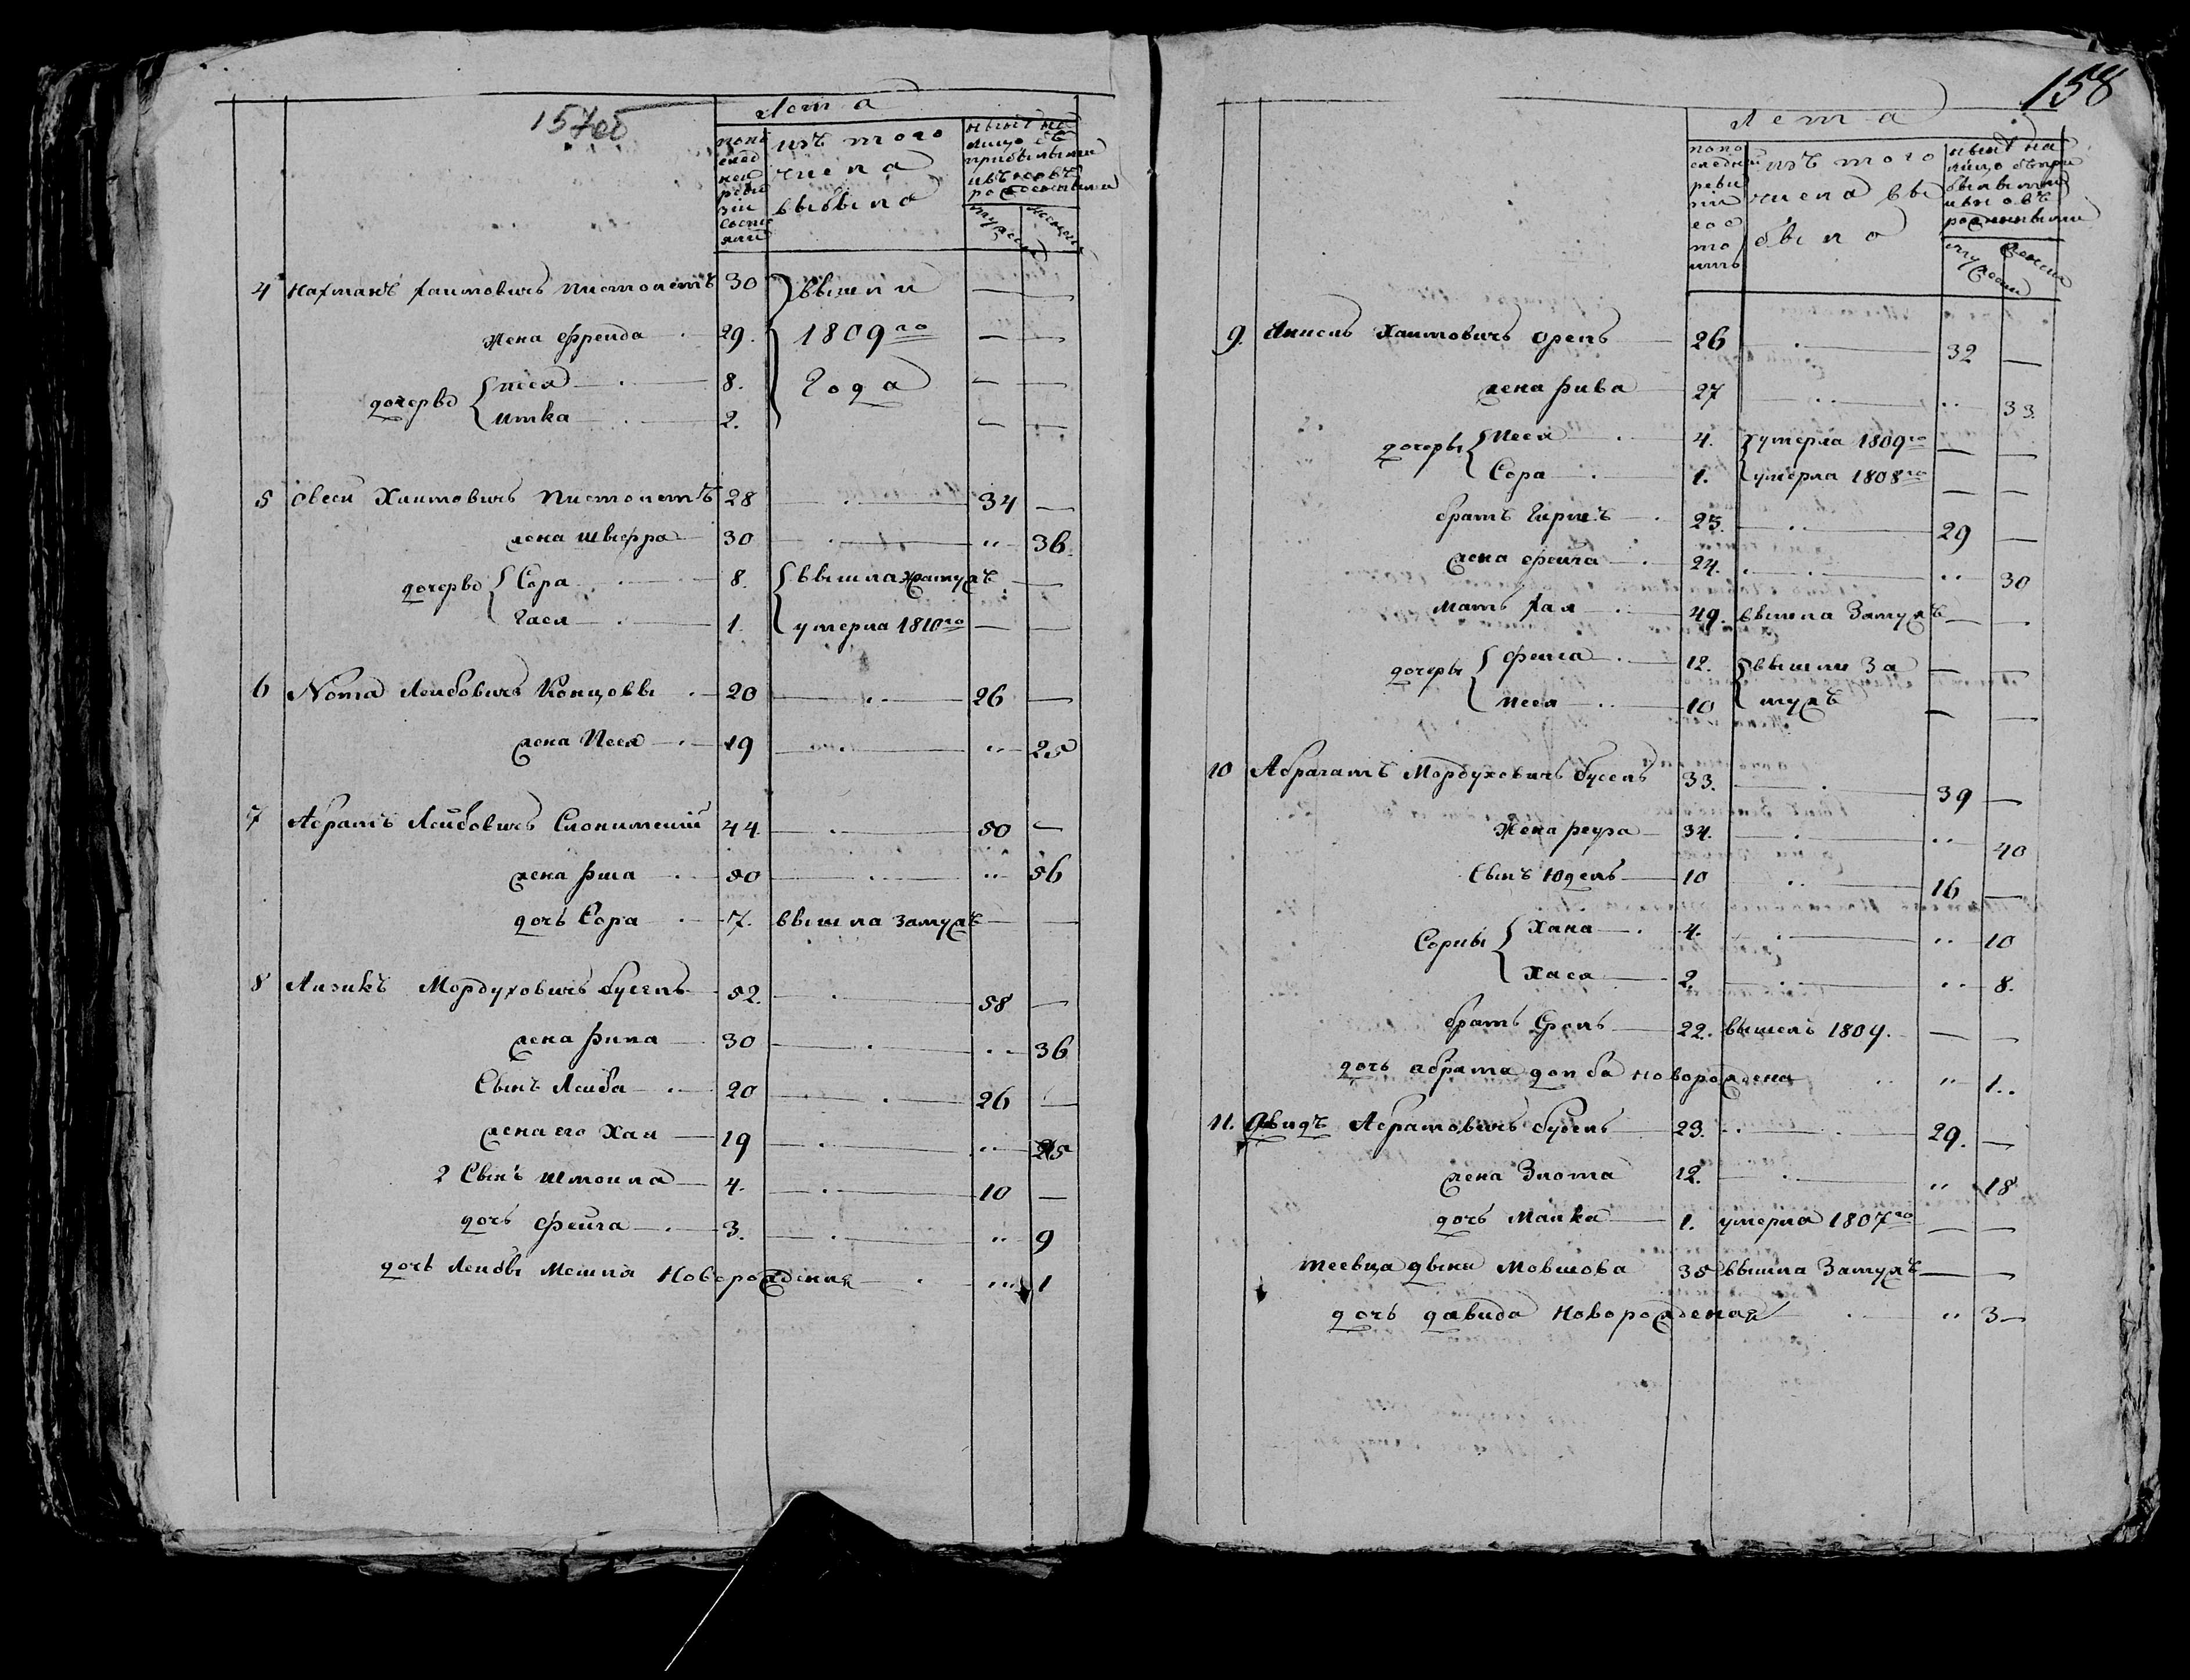 157об
Лета
по по след ней реви зіи состо яли
изъ того числа выбыло
ныне на лицо съ прибылыми и въ новъ рожденными
мужеска женска
4 Нахманъ Хаимовичъ Пистолетъ 30 вышли — —
жена Фрейда 29. 1809го — —
дочерье Песя 8. года — —
Итка 2. — —
5 Овсей Хаимовичъ Пистолетъ 28 — 34 —
жена Шверра 30 — " 36.
дочерье Сора 8. вышла замужъ — —
Гася 1. умерла 1810го — —
6 Нота Лейбовичъ Концовы 20 — 26 —
жена Песя 19 — " 25
7 Абрамъ Лейбовичъ Слонимский 44. — 50 —
жена Риша 50 — " 56
дочь Сора 7. вышла замужъ — —
8 Аизикъ Мордуховичъ Бусель 52. — 58 —
жена Рила 30 — " 36
Сынъ Лейба 20 — 26 —
жена его Хая 19 — " 25
2 Сынъ Шмоила 4. — 10 —
дочь Фейга 3. — " 9
дочь Лейбы Мешля Новорожденная — " 1
158
Лета
по по следней реви зіи со сто итъ
изъ того числа вы было
ныне на лицо съ при былыми и вновь рожденными
мужеска женска
9. Анцель Хаимовичъ Орель 26 — 32 —
жена Рива 27 — " 33.
дочеры Песя 4. умерла 1809го — —
Сора 1. умерла 1808го — —
братъ Гиршъ 23. — 29 —
жена Фейга 24. — " 30
мать Хая 49. вышла Замужъ — —
дочеры Фейга 12. вышли За — —
Песя 10 мужъ — —
10 Абрагамъ Мордуховичъ Бусель 33. — 39 —
жена Реуза 34. — " 40
Сынъ Юдель 10 — 16 —
Сорны Хана 4. — " 10
Хася 2. — " 8.
братъ Сроль 22. вышелъ 1809. — —
дочь абрама доиба новорождена " 1..
11. Двидъ Абрамовичъ Бусель 23. — 29. —
жена Злота 12. — " 18
дочь Малка 1. умерла 1807го — —
тесвца двыня Мовшова 35 вышла Замужъ — —
дочь давида новорожденая " 3—